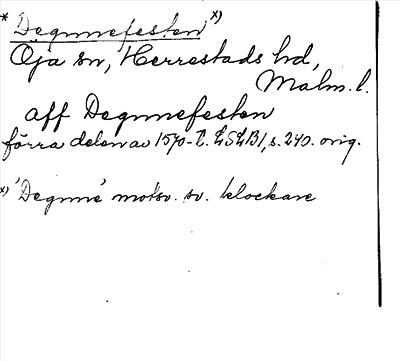 * Degnnefesten x)
Öja sn, Herrestads hd,
Malm. l.
aff Degnnefesten
förra delen av 1570-t. LSLB1, s. 240. orig.
x) 'Degnne' motsv. sv. klockare